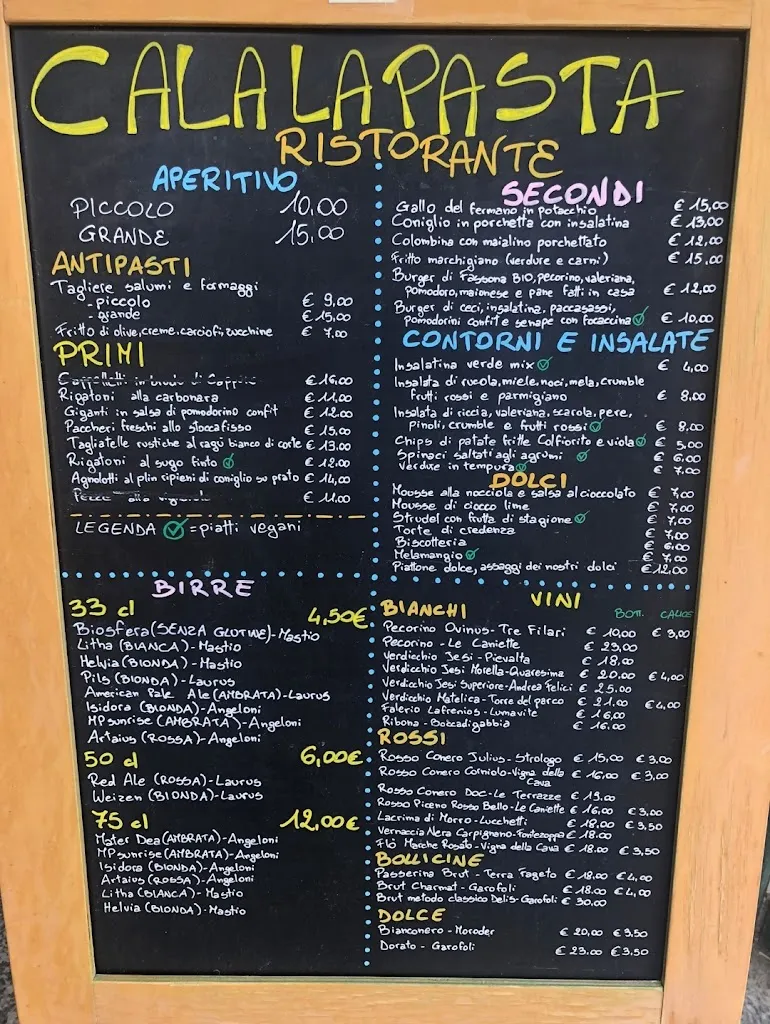 CALALAPASTA
RISTORANTE
APERITIVO
PICCOLO 10,00
GRANDE 15,00
ANTIPASTI
Tagliere salumi e formaggi
- piccolo € 9,00
- grande € 15,00
Fritto di olive, creme, carciofi, zucchine € 7,00
PRIMI
Cappelletti in brodo di Cappone € 16,00
Rigatoni alla carbonara € 11,00
Giganti in salsa di pomodorino confit € 12,00
Paccheri freschi allo stoccafisso € 15,00
Tagliatelle rustiche al ragù bianco di corte € 13,00
Rigatoni al sugo finto € 12,00
Agnolotti al plin ripieni di coniglio su prato € 14,00
€ 11,00
LEGENDA = piatti vegani
SECONDI
Gallo del fermano in potacchio € 15,00
Coniglio in porchetta con insalatina € 13,00
Colombina con maialino porchettato € 12,00
Fritto marchigiano (verdure e carni) € 15,00
Burger di Fassona BIO, pecorino, valeriana,
pomodoro, maionese e pane fatti in casa € 12,00
Burger di ceci, insalatina, paccasassi,
pomodorini confit e senape con focaccina € 10,00
CONTORNI E INSALATE
Insalatina verde mix € 4,00
Insalata di rucola, miele, noci, mela, crumble
frutti rossi e parmigiano € 8,00
Insalata di riccia, valeriana, scarola, pere,
pinoli, crumble e frutti rossi € 8,00
Chips di patate fritte Colfiorito e viola € 5,00
Spinaci saltati agli agrumi € 6,00
Verdure in tempura € 7,00
DOLCI
Mousse alla nocciola e salsa al cioccolato € 7,00
Mousse di ciocco lime € 7,00
Strudel con frutta di stagione € 7,00
Torte di credenza € 7,00
Biscotteria € 6,00
Melamangio € 7,00
Piattone dolce, assaggi dei nostri dolci € 12,00
BIRRE
33 cl 4,50€
Biosfera (SENZA GLUTINE) - Mastio
Litha (BIANCA) - Mastio
Helvia (BIONDA) - Mastio
Pils (BIONDA) - Laurus
American Pale Ale (AMBRATA) - Laurus
Isidora (BIONDA) - Angeloni
MPsunrise (AMBRATA) - Angeloni
Artaius (ROSSA) - Angeloni
50 cl 6,00€
Red Ale (ROSSA) - Laurus
Weizen (BIONDA) - Laurus
75 cl 12,00€
Mater Dea (AMBRATA) - Angeloni
MPsunrise (AMBRATA) - Angeloni
Isidora (BIONDA) - Angeloni
Artaius (ROSSA) - Angeloni
Litha (BIANCA) - Mastio
Helvia (BIONDA) - Mastio
VINI
BIANCHI BOTT. CALICE
Pecorino Ovinus - Tre Filari € 10,00 € 3,00
Pecorino - Le Caniette € 23,00
Verdicchio Jesi - Pievalta € 18,00
Verdicchio Jesi Morella - Quaresima € 20.00 € 4,00
Verdicchio Jesi Superiore - Andrea Felici € 25.00
Verdicchio Matelica - Torre del parco € 21.00 € 4,00
Falerio Lafrenios - Lumavite € 16,00
Ribona - Boccadigabbia € 16.00
ROSSI
Rosso Conero Julius - Strologo € 15,00 € 3,00
Rosso Conero Corniolo - Vigna della Cava € 16,00 € 3,00
Rosso Conero Doc - Le Terrazze € 19.00
Rosso Piceno Rosso Bello - Le Caniette € 16,00 € 3,00
Lacrima di Morro - Lucchetti € 18.00 € 3,50
Vernaccia Nera Carpignano - Fontezoppa € 18.00
Flò Marche Rosato - Vigna della Cava € 18.00 € 3,50
BOLLICINE
Passerina Brut - Terra Fageto € 18,00 € 4,00
Brut Charmat - Garofoli € 18.00 € 4,00
Brut metodo classico Delis - Garofoli € 30.00
DOLCE
Bianconero - Moroder € 20,00 € 3,50
Dorato - Garofoli € 23.00 € 3,50